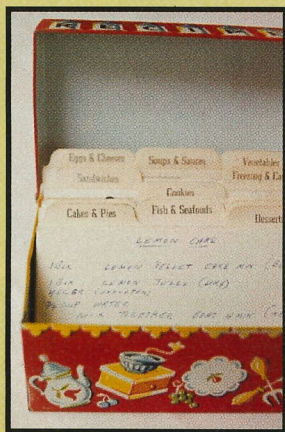 Eggs & Cheeses
Soups & Sauces
Vegetables
Sandwiches
Freezing & Ca
Cookies
Cakes & Pies
Fish & Seafoods
Dessert
LEMON CAKE
1 BOX LEMON VELVET CAKE MIX
1 BOX LEMON JELLO
WATER
MIX TOGETHER BEAT 4 MIN